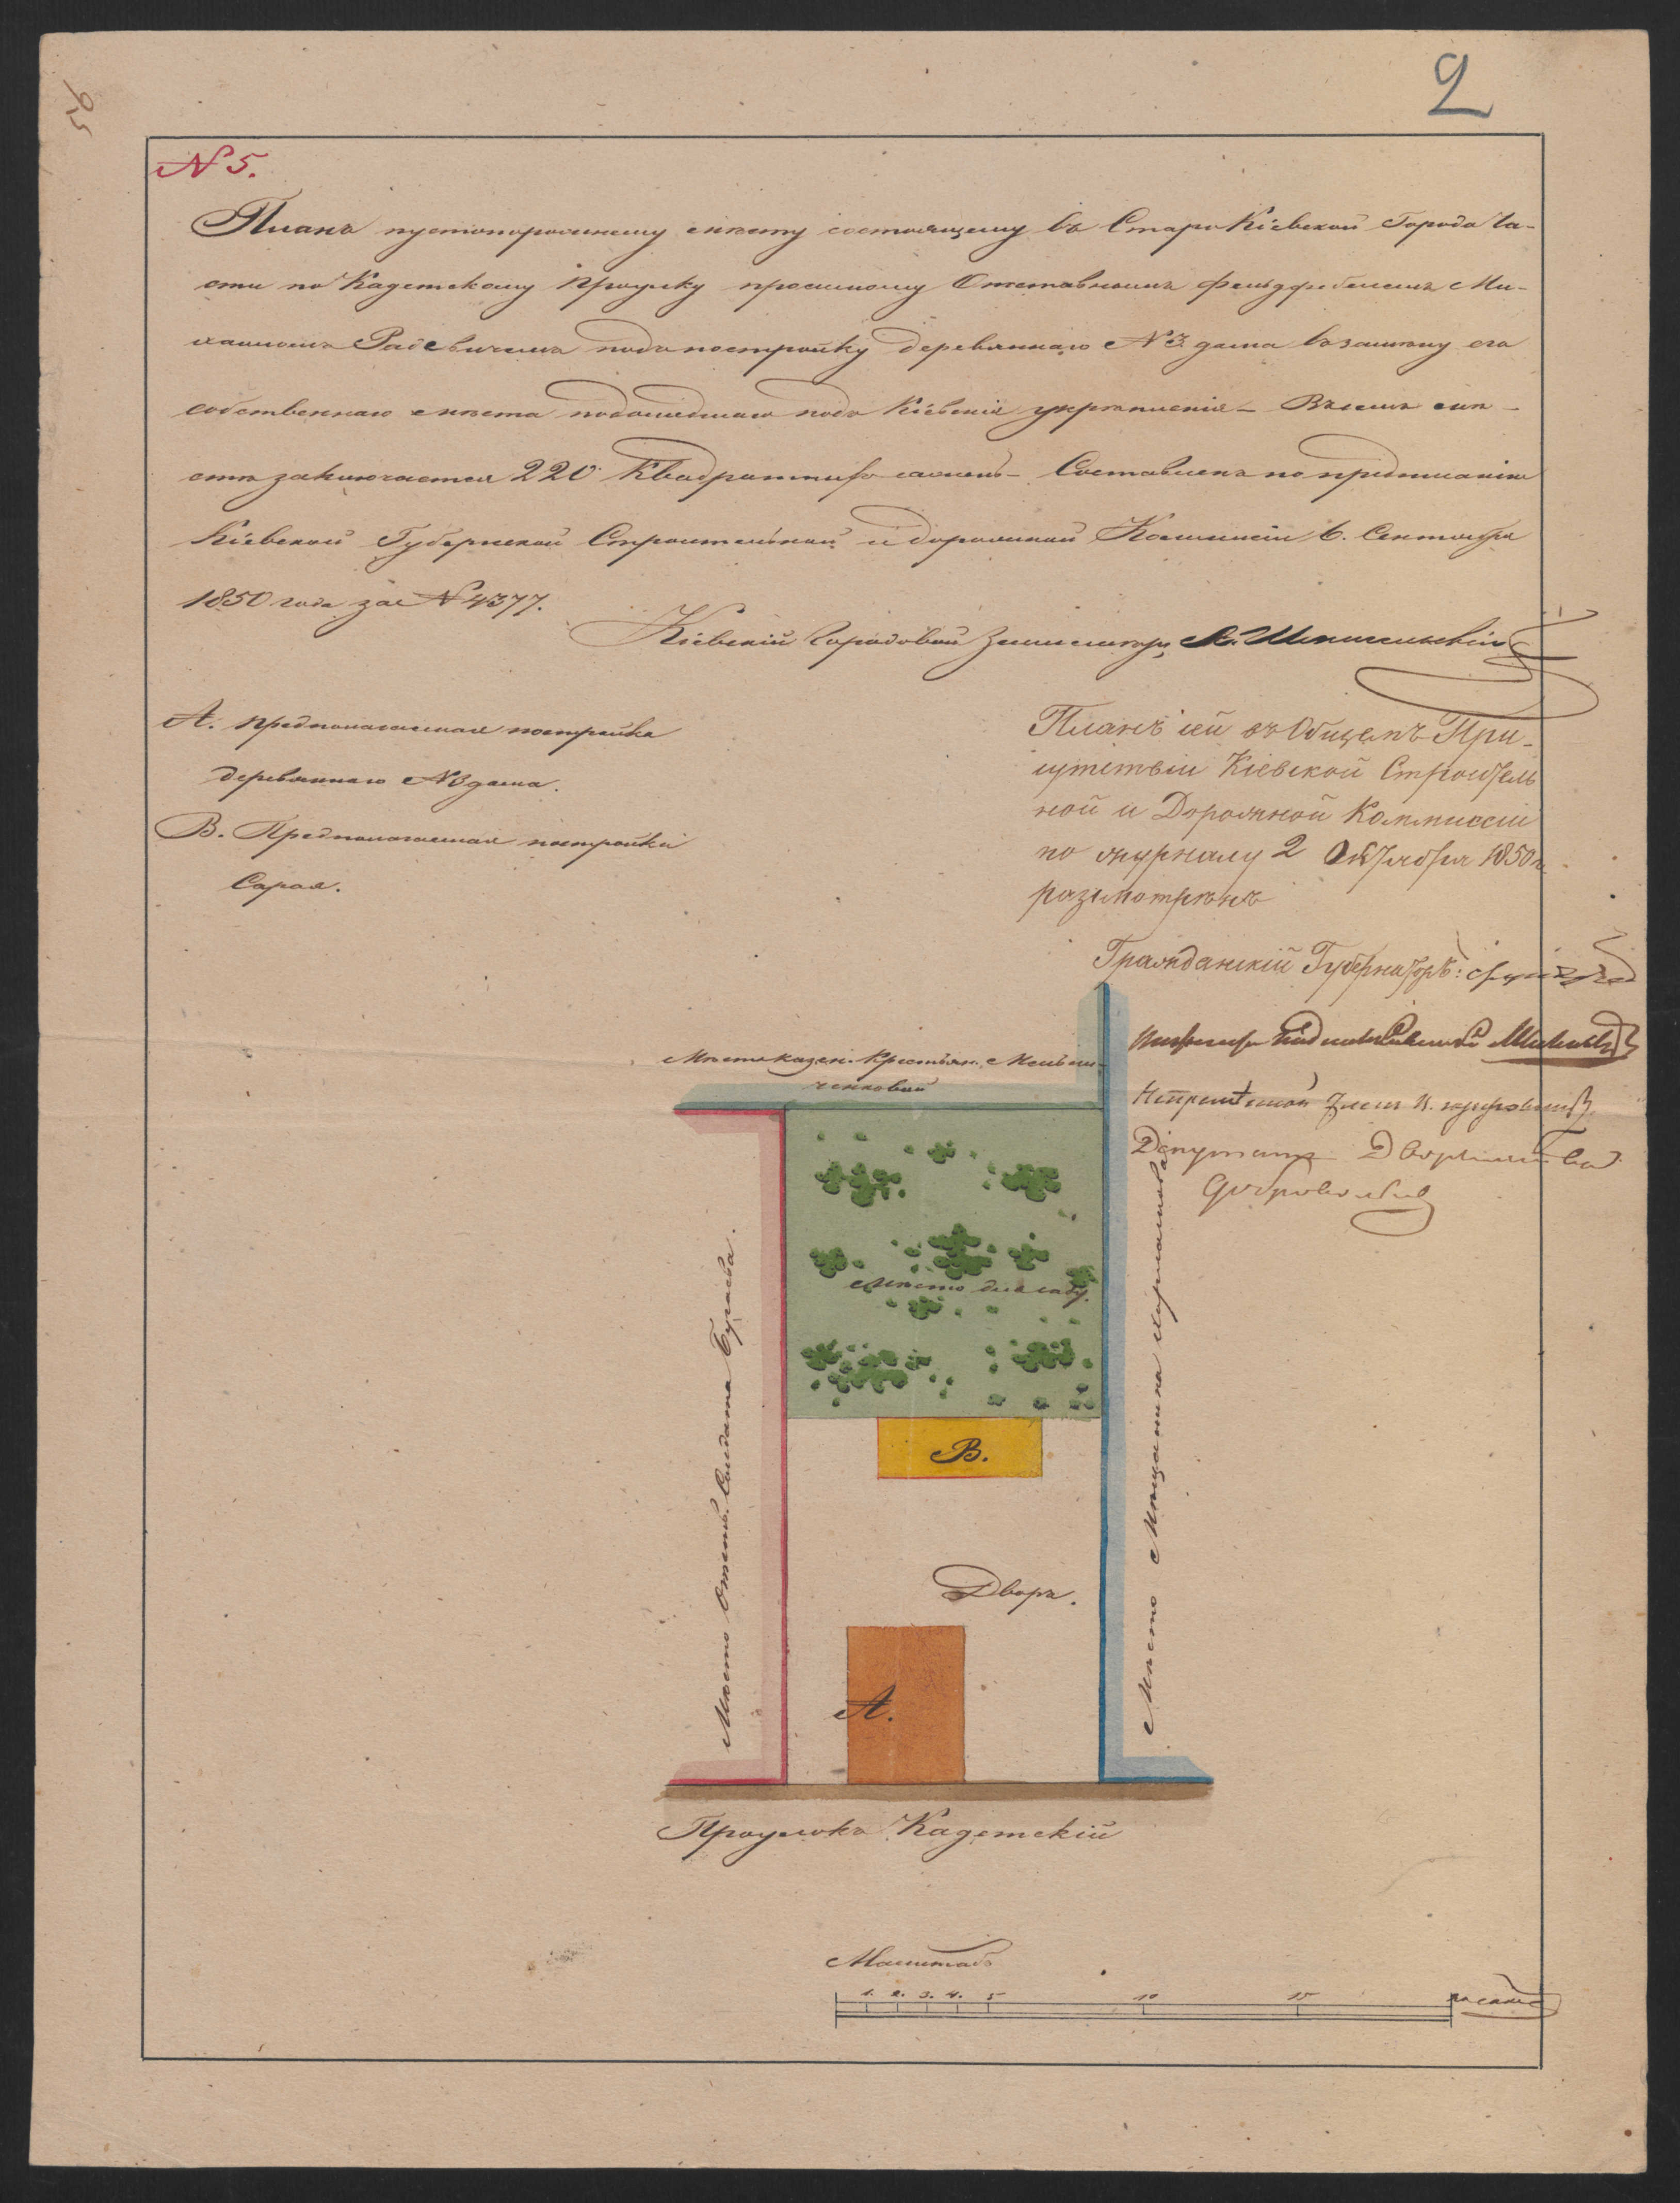 2
95
N 5.
Планъ пустопорожнему мѣсту состоящему въ Старо Кіевской Города Ча-
сти по Кадетскому проулку просимому Отставнымъ фельдфебелемъ Ми-
хаиломъ Радевичемъ подъ постройку деревяннаго N 3 дома взамѣну его
собственнаго мѣста подошедшаго подъ Кіевскія укрѣпленія – Въ семъ мѣ-
стѣ заключается 220 Квадратныхъ сажень – Составленъ по предписанію
Кіевской Губернской Строительной и дорожной Коммисіи 6. Сентября
1850 года за N 4377.
Кіевскій Городовой Землемѣръ
А. предполагаемая постройка
деревяннаго N 3 дома.
В. Предполагаемая постройка
Сарая.
Планъ сей въ Общемъ При-
сутствіи Кіевской Строитель
ной и Дорожной Коммиссіи
по журналу 2 Октября 1850 г.
разсмотрѣнъ
Гражданскій Губернаторъ:
Непремѣнный Членъ
Депутатъ Дворянства
Мѣсто казен. Крестьян.
Мѣсто для саду.
Мѣсто Отстав. Солдата Бугаева.
Мѣсто Мѣщанина
В.
Дворъ.
А.
Проулокъ Кадетскій
Масштабъ
1. 2. 3. 4. 5 10 15 20 саже